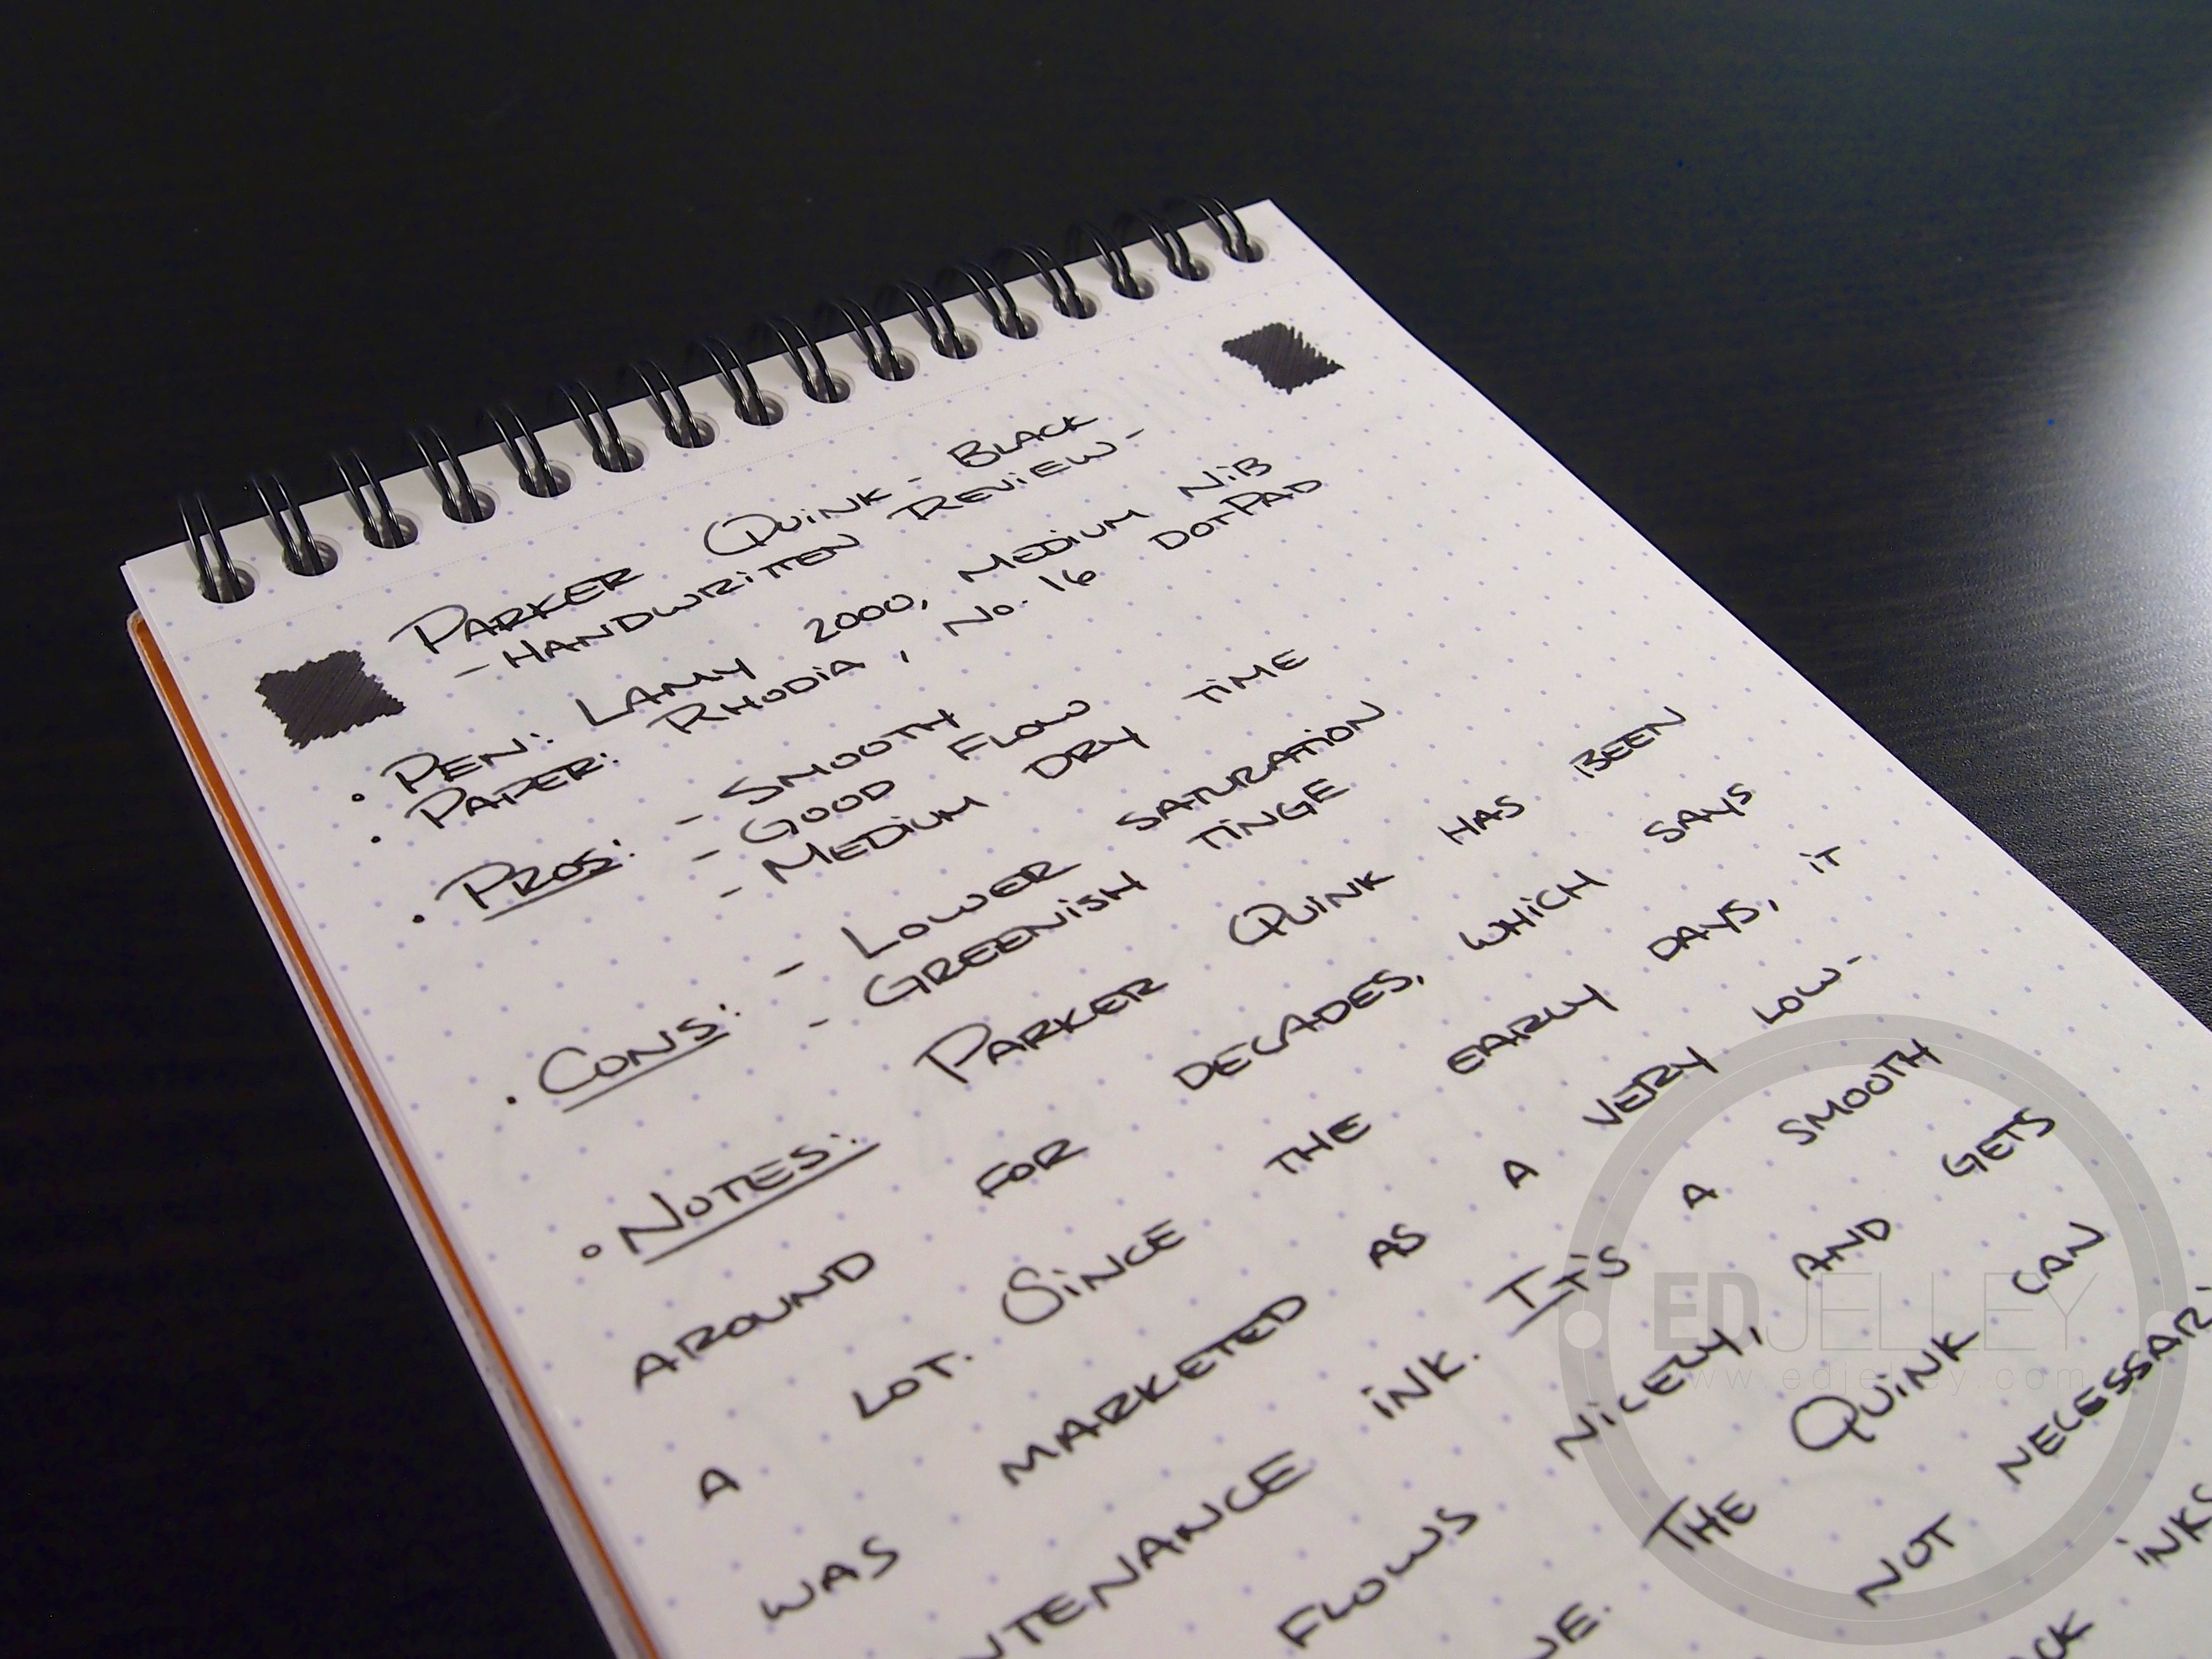 PARKER QUINK - BLACK
- HANDWRITTEN REVIEW -
• PEN: LAMY 2000, MEDIUM NIB
• PAPER: RHODIA, No. 16 DOTPAD
• PROS: - SMOOTH
- GOOD FLOW
- MEDIUM DRY TIME
• CONS: - LOWER SATURATION
- GREENISH TINGE
• NOTES: PARKER QUINK HAS BEEN
AROUND FOR DECADES, WHICH SAYS
A LOT. SINCE THE EARLY DAYS, IT
WAS MARKETED AS A VERY LOW-
NTENANCE INK. IT'S A SMOOTH
FLOWS NICELY, AND GETS
UE. THE QUINK CAN
NOT NECESSARI
CK INKS
EDJELLEY
www.edjelley.com